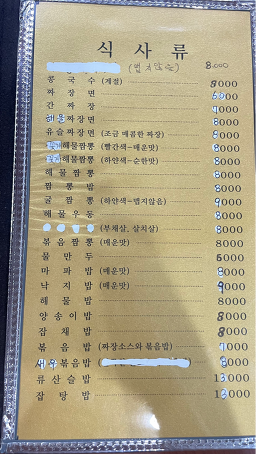 식 사 류
(맵지않음) 8.000
콩 국 수 (계절) 8000
짜 장 면
간 짜 장
해물짜장면 8000
유슬짜장면 (조금 매콤한 짜장) 8000
해물짬뽕 (빨간색-매운맛) 8000
해물짬뽕 (하얀색-순한맛) 8000
해 물 짬 뽕 8000
짬 뽕 밥 8000
굴 짬 뽕 (하얀색-맵지않음) 9000
해 물 우 동 8000
(부채살, 살치살) 8000
볶 음 짬 뽕 (매운맛) 8000
물 만 두 6000
마 파 밥 (매운맛) 8000
낙 지 밥 (매운맛) 9000
해 물 밥 8000
양 송 이 밥 8000
잡 채 밥 8000
볶 음 밥 (짜장소스와 볶음밥)
새우볶음밥 8000
류 산 슬 밥
잡 탕 밥